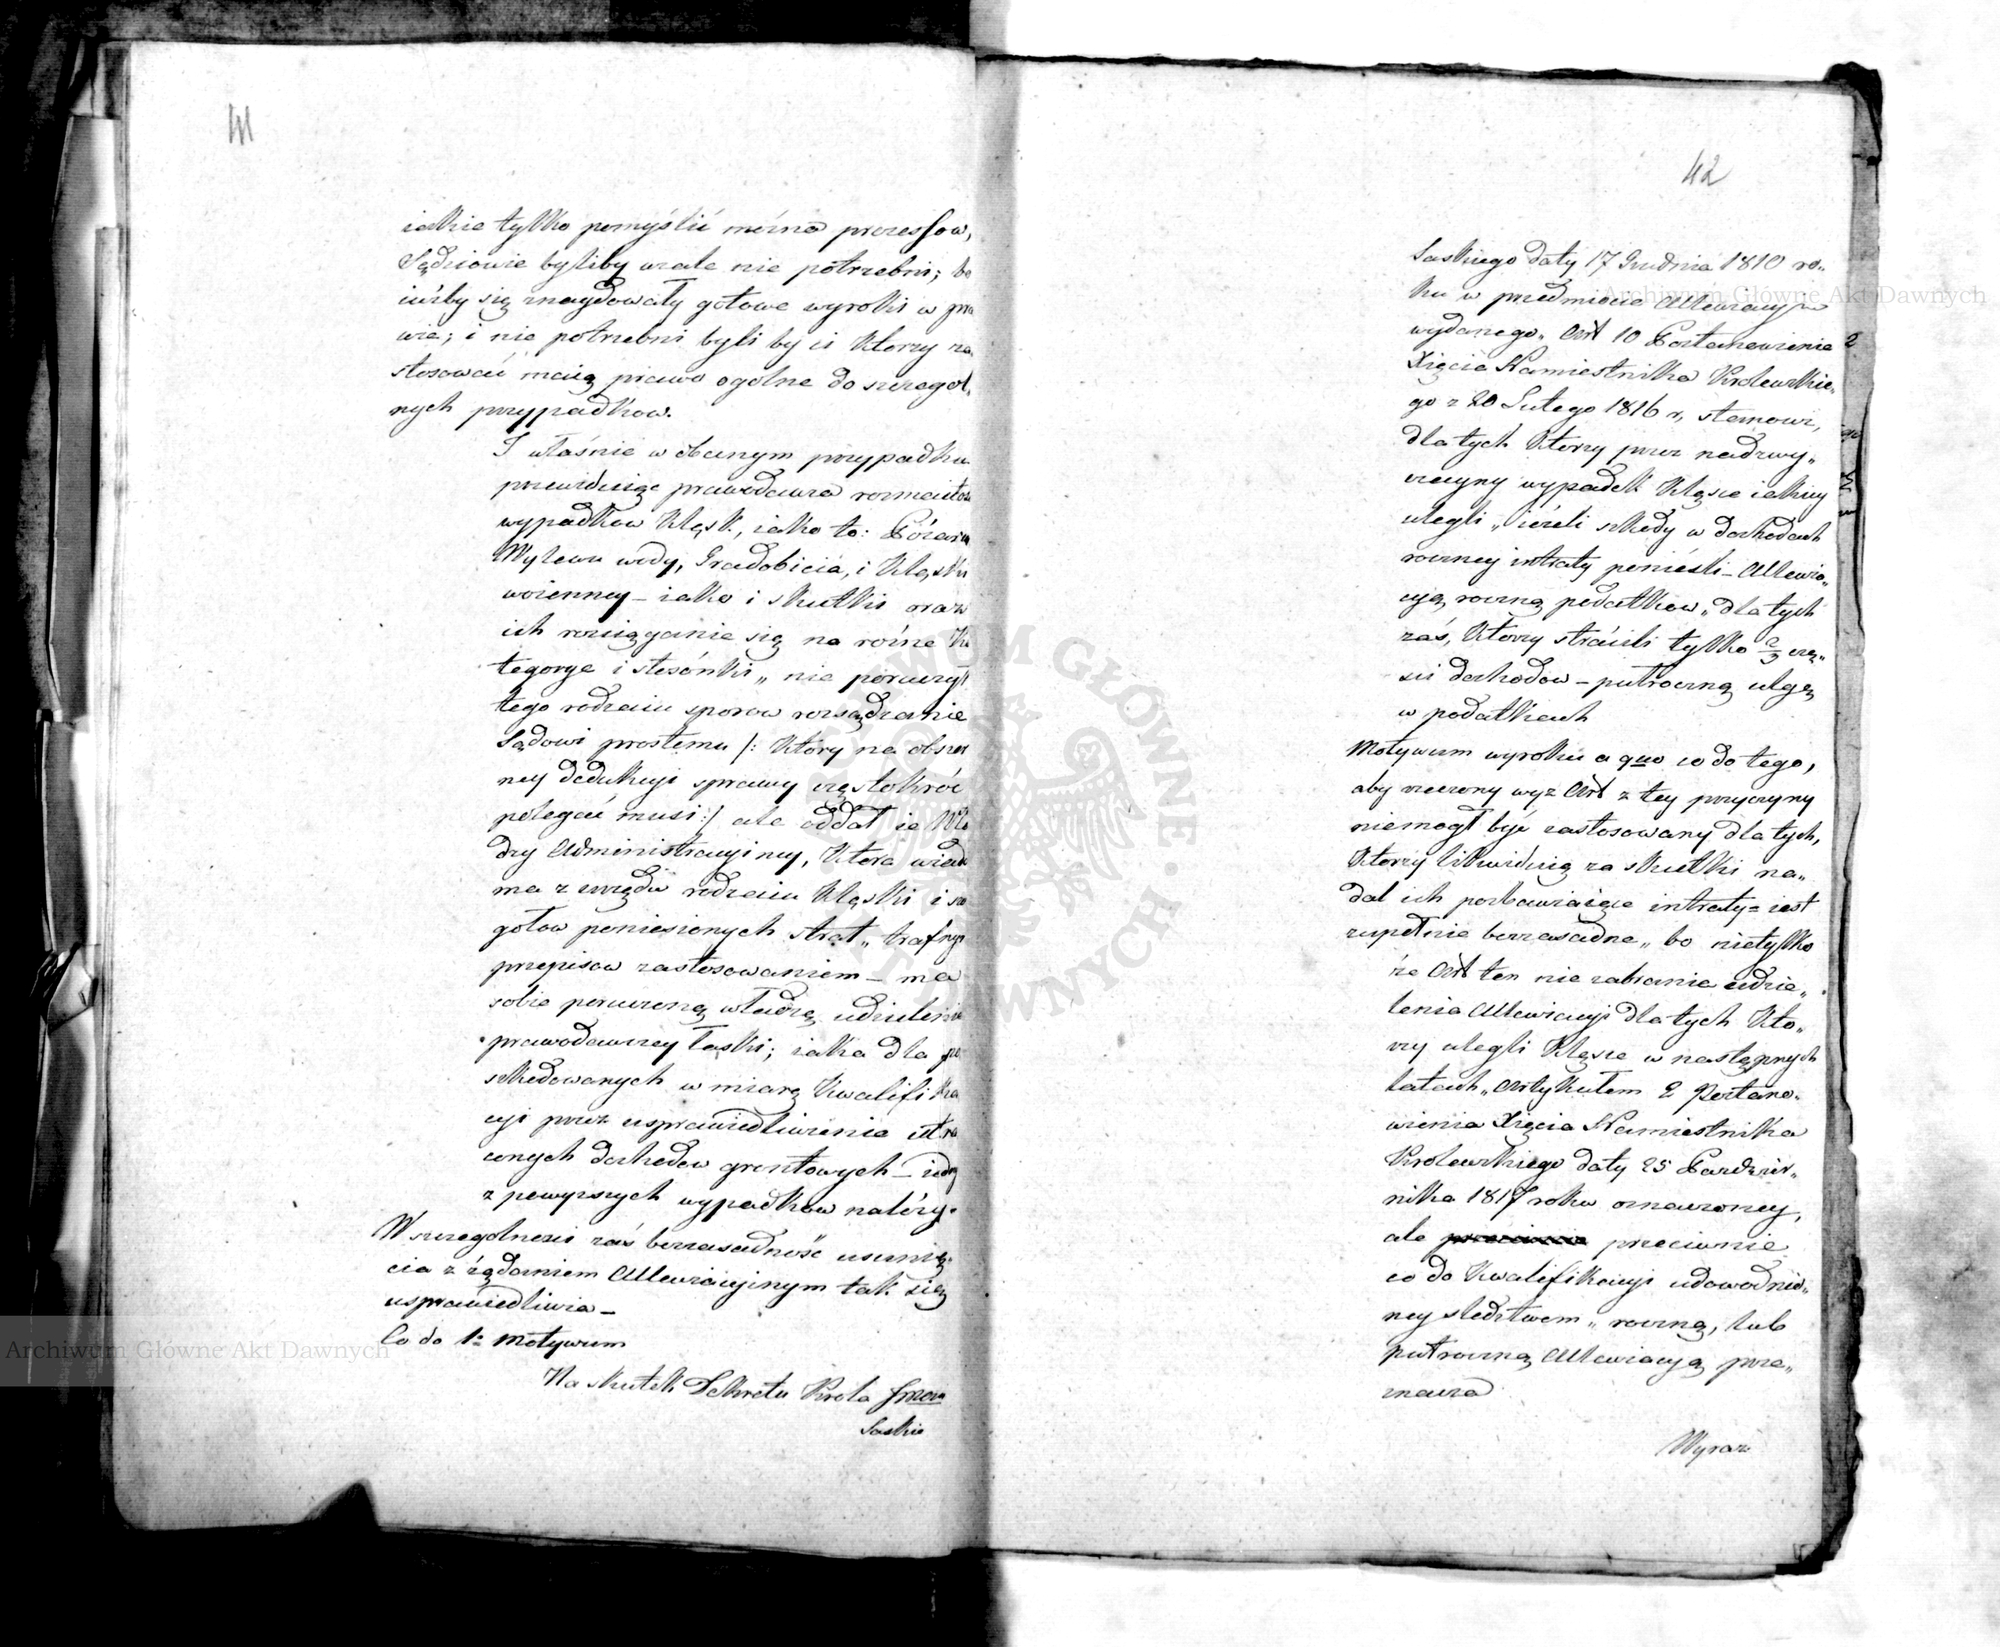 41
iakie tylko pomyślić można processow,
Sędziowie byliby wcale nie potrzebni; bo
iużby się znaydowały gotowe wyroki w pra
wie; i nie potrzebni byli by ci którzy za
stosować maią prawo ogolne do szczegol,
nych przypadkow.
I właśnie w obecnym przypadku
przewiduiąc prawodawca rozmaitość
wypadkow klęsk, iako to: Pożaru
Wylewu wody, Gradobicia, i Klęski
woienney – iako i skutki oraz
ich rozciąganie się na różne Ka
tegorye i stosónki „ nie poruczył
tego rodzaiu sporow rozsądzenie
Sądowi prostemu /: który na obszer
ney dedukcyi sprawy częstokróć
polegać musi :/ ale oddał ie Wła
dzy Administracyiney, która wiado
ma z urzędu rodzaiu klęski i sze
gołow poniesionych strat „ trafnym
przepisow zastosowaniem – ma
sobie poruczoną władzę udzielenia
prawodawczey łaski; iaka dla po
szkodowanych w miarę Kwalifika
cyi przez usprawiedliwienie utra
conych dochodow gruntowych –
z powyższych wypadkow należy.
W szczegolnosci zaś bezzasadność usunię,
cia z żądaniem Allewiacyinym tak się
usprawiedliwia –
Co do 1º Motywum
Na skutek Dekretu Krola
Saskie
42
Saskiego daty 17 Grudnia 1810 ro„
ku w przedmiocie Allewiacyi
wydanego „ Art 10 Postanowienia
Xięcia Namiestnika Krolewskie„
go z 20 Lutego 1816 r, stanowi,
dla tych którzy przez nadzwy„
czayny wypadek klęsce iakiey
ulegli „ ieżeli szkody w dochodach
roczney intraty ponieśli – Allewia„
cyą roczną podatkow „ dla tych
zaś, którzy stracili tylko 2/3 czę„
sci dochodow – pułroczną ulgę
w podatkach
Motywum wyroku a quo co do tego,
aby rzeczony wyż Art z tey przyczyny
niemogł być zastosowany dla tych,
którzy likwiduią za skutki na„
dal ich pozbawiaiące intraty = iest
zupełnie bezzasadne „ bo nietylko
że Art ten nie zabrania udzie„
lenia Allewiacyi dla tych kto„
rzy ulegli klęsce w następnych
latach „ Artykułem 2 Postano„
wienia Xięcia Namiestnika
Krolewskiego daty 25 Pazdzier„
nika 1817 roku oznaczoney,
ale przeciwnie
co do Kwalifikacyi udowodnio„
ney sledztwem „ roczną, lub
pułroczną Allewiacyą prze„
znacza
Wyraz